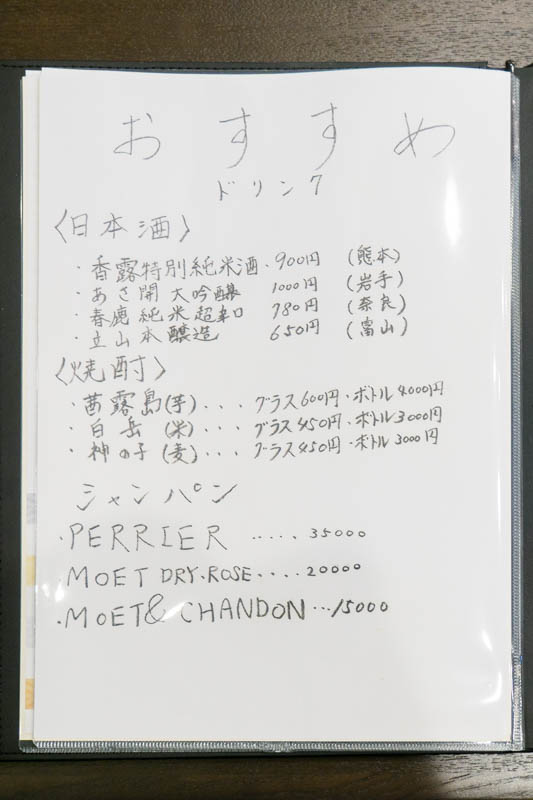 おすすめ
ドリンク
〈日本酒〉
・香露特別純米酒・900円 (熊本)
・あさ開 大吟醸 1000円 (岩手)
・春鹿 純米超辛口 780円 (奈良)
・立山本醸造 650円 (富山)
〈焼酎〉
・茜露島(芋)... グラス600円・ボトル4000円
・白岳 (米)... グラス450円・ボトル3000円
・神の子 (麦)... グラス450円・ボトル3000円
シャンパン
・PERRIER ..... 35000
・MOET DRY・ROSE.... 20000
・MOET & CHANDON ...15000